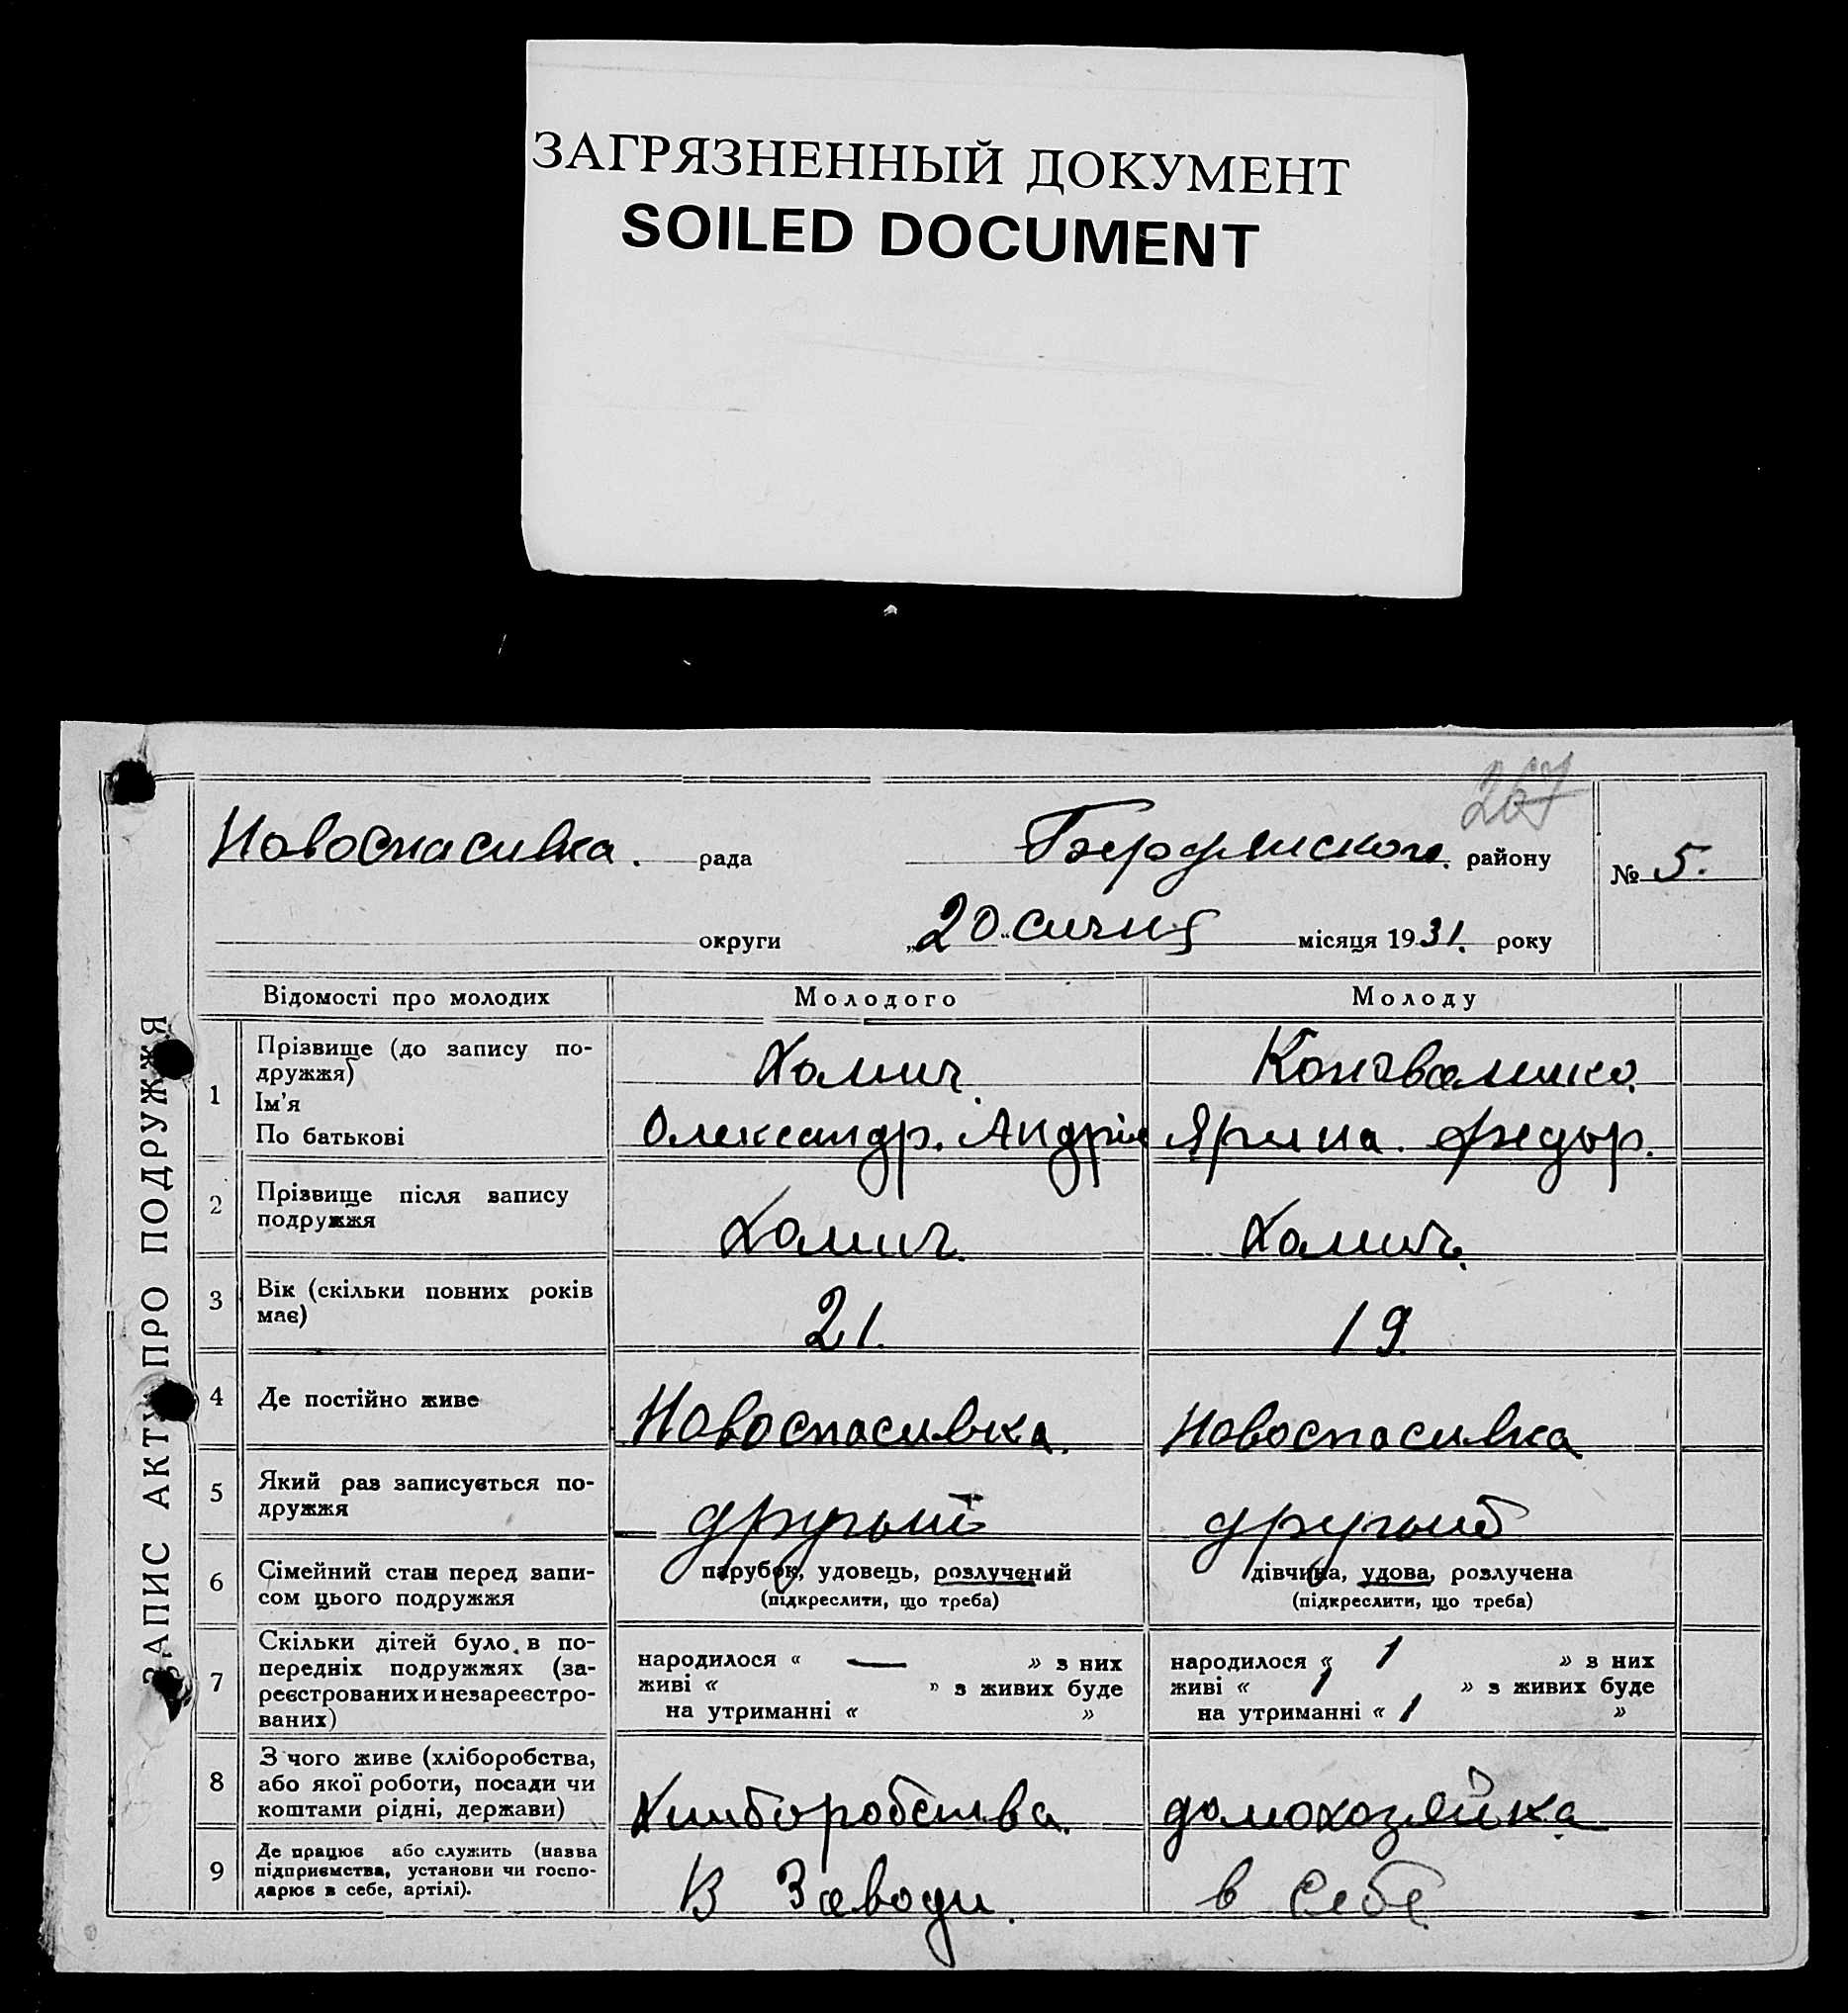 ЗАГРЯЗНЕННЫЙ ДОКУМЕНТ
SOILED DOCUMENT
267
Новоспасивка. рада Бердянского. району № 5.
округи „20" сичня місяця 1931. року
ЗАПИС АКТУ ПРО ПОДРУЖЖЯ
Відомості про молодих Молодого Молоду
1 Прізвище (до запису по-
дружжя) Хомич.
Ім'я
По батькові Олександр. Андрій Ярина. Федор.
2 Прізвище після запису
подружжя Хомич. Хомич.
3 Вік (скільки повних років
має) 21. 19.
4 Де постійно живе Новоспасивка. Новоспасивка
5 Який раз записується по-
дружжя другый другый
6 Сімейний стан перед запи-
сом цього подружжя парубок, удовець, розлучений дівчина, удова, розлучена
(підкреслити, що треба) (підкреслити, що треба)
7 Скільки дітей було в по-
передніх подружжях (за-
реєстрованих и незареєстро-
ваних) народилося « — » з них народилося « 1 » з них
живі « » з живих буде живі « 1 » з живих буде
на утриманні « » на утриманні « 1 »
8 З чого живе (хліборобства,
або якої роботи, посади чи
коштами рідні, держави) Хлиборобства. домохозяйка
9 Де працює або служить (назва
підприємства, установи чи госпо-
дарює в себе, артілі). В Заводи. в себе